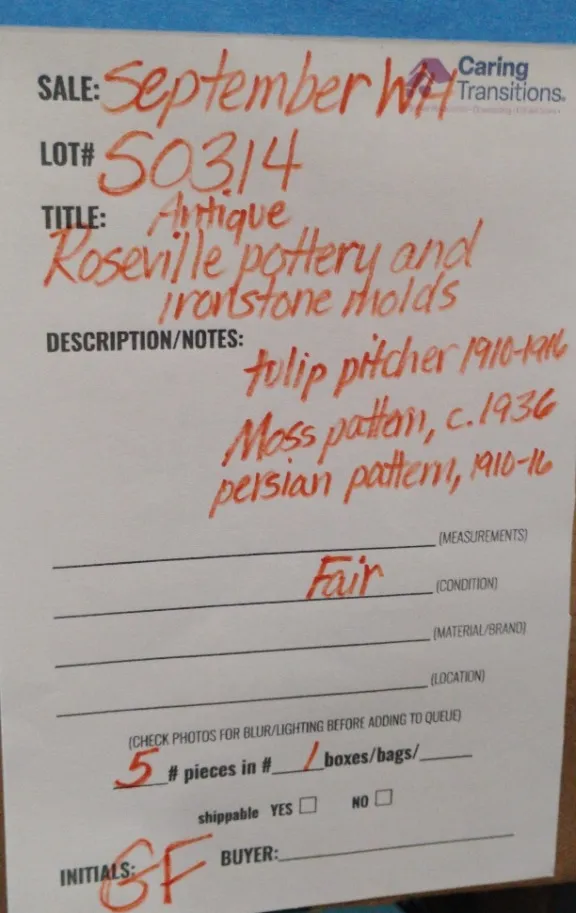 Caring
Transitions®
SALE: September WH
LOT# S0314
TITLE: Antique
Roseville pottery and
ironstone molds
DESCRIPTION/NOTES:
tulip pitcher 1910-1916
Moss pattern, c. 1936
persian pattern, 1910-16
(MEASUREMENTS)
Fair (CONDITION)
(MATERIAL/BRAND)
(LOCATION)
(CHECK PHOTOS FOR BLUR/LIGHTING BEFORE ADDING TO QUEUE)
5 # pieces in # 1 boxes/bags/
shippable YES NO
INITIALS: GF BUYER: